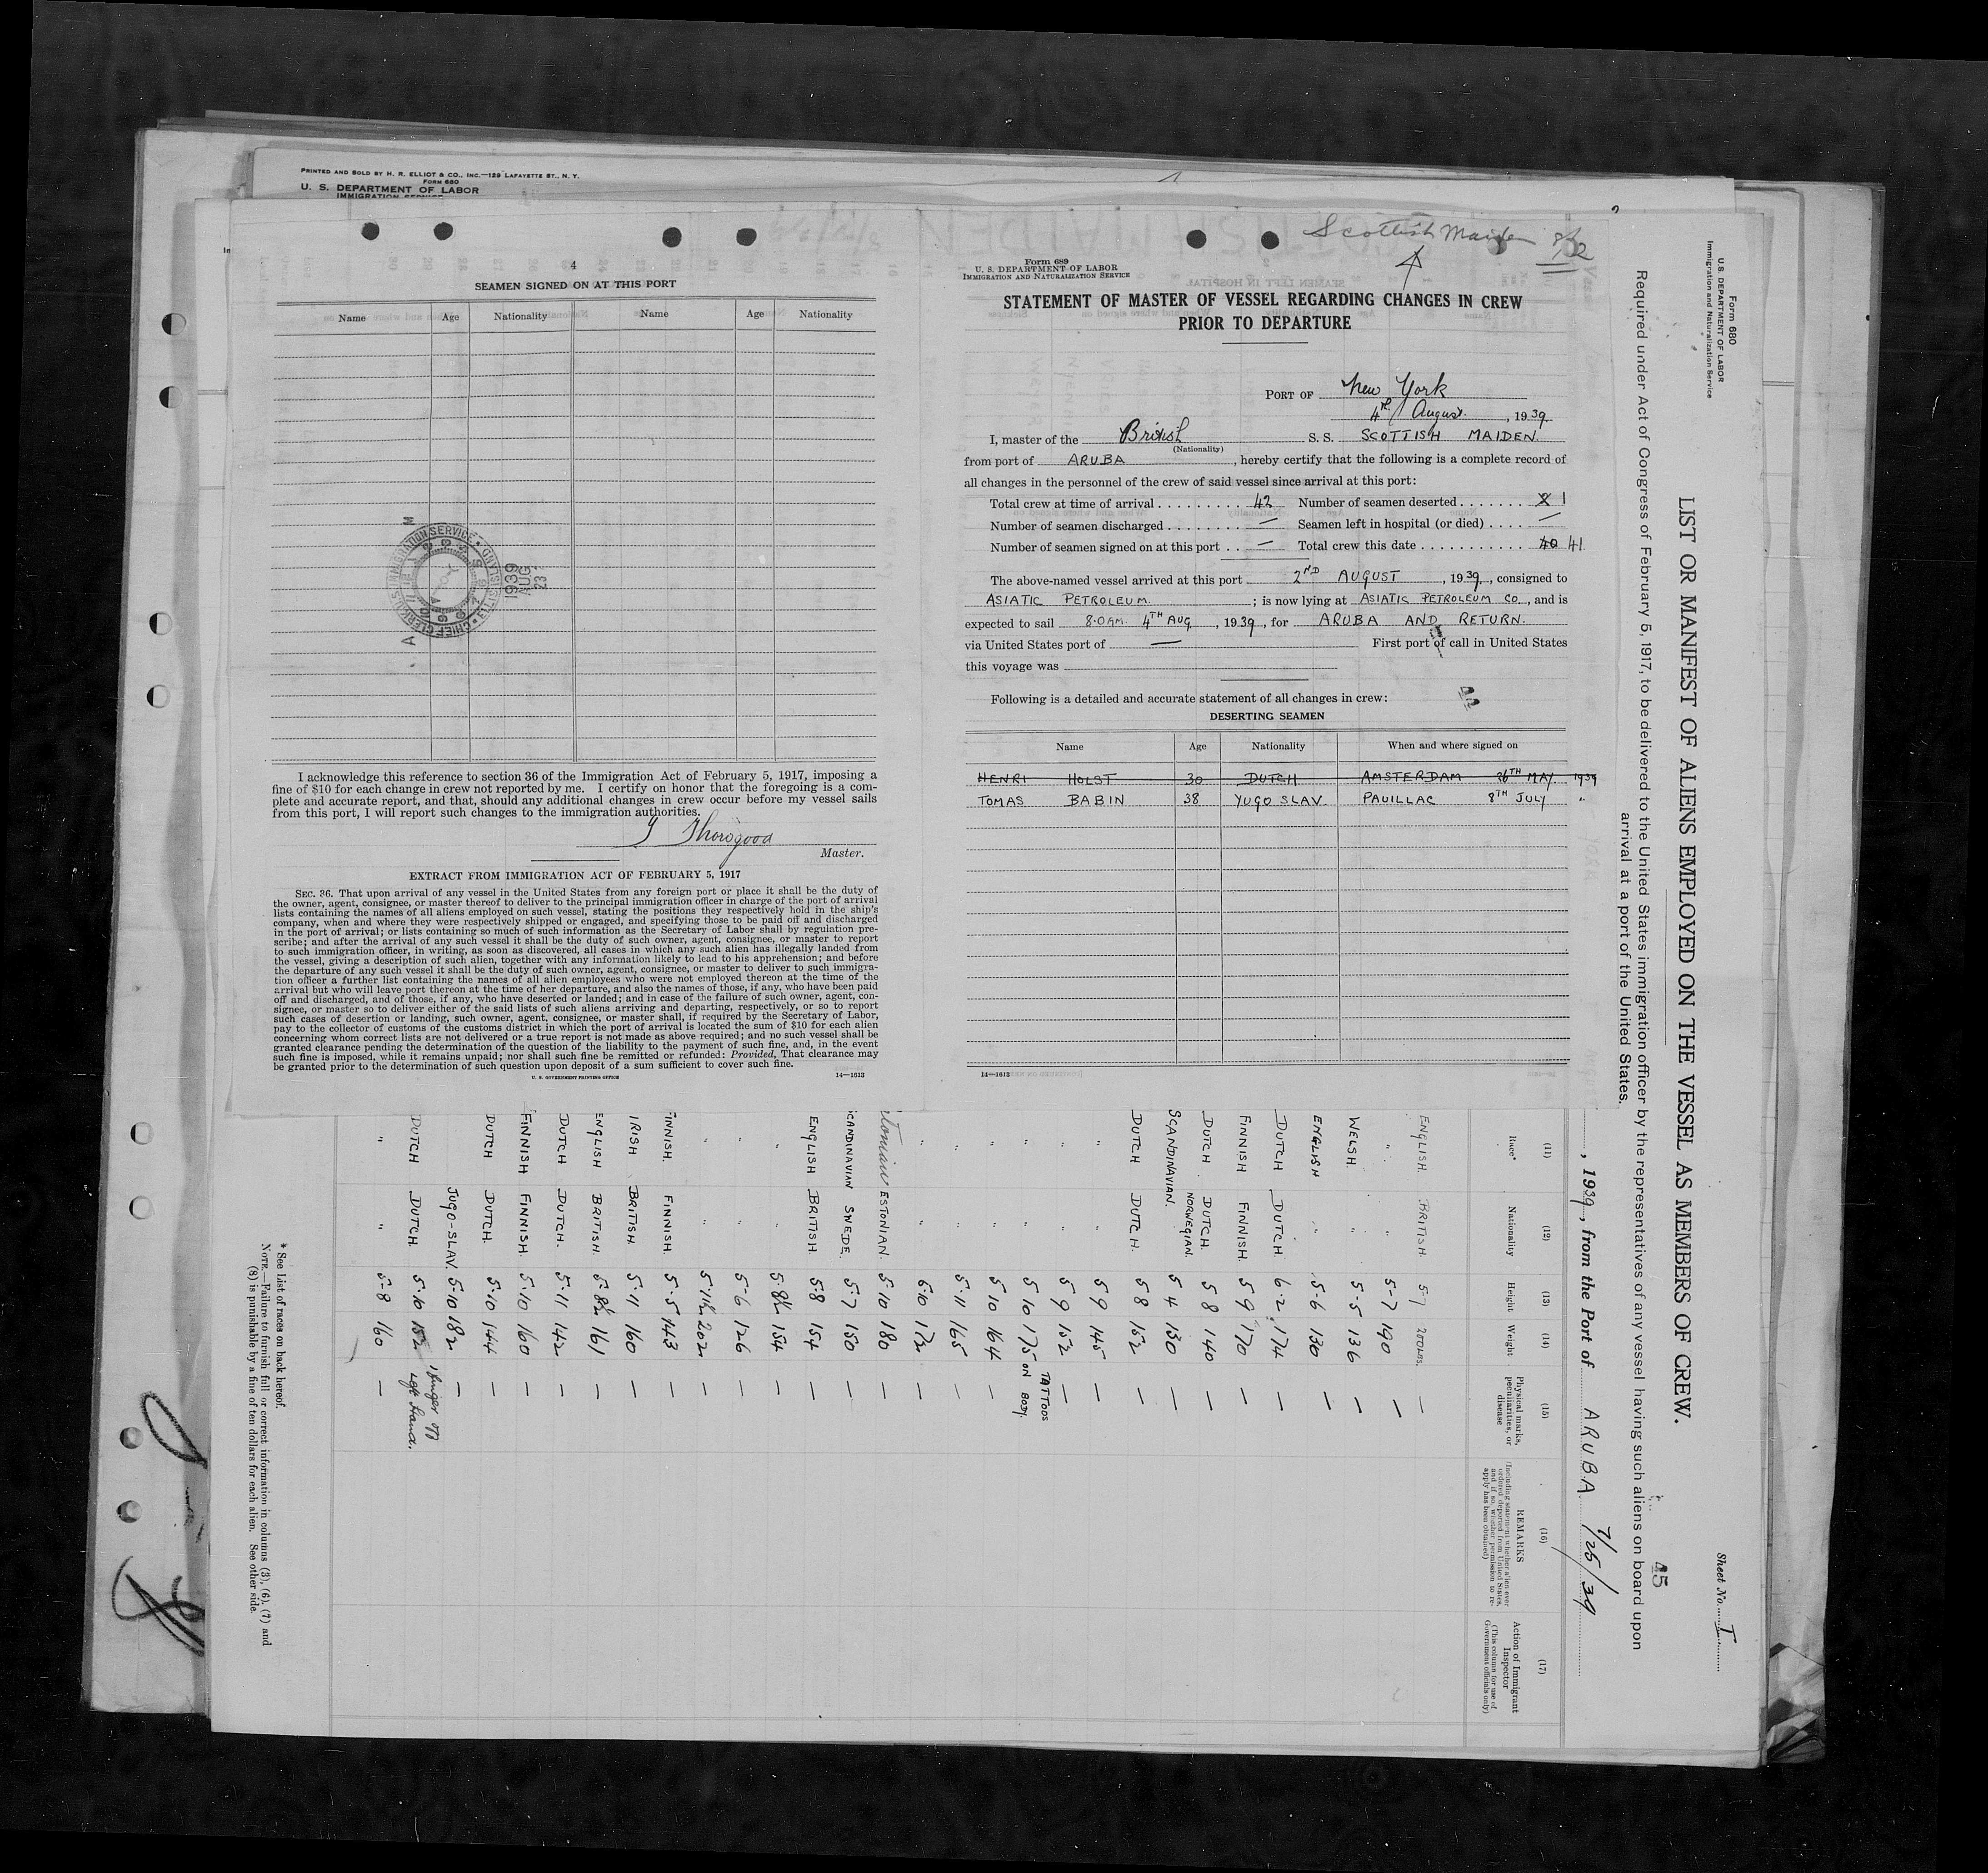 PRINTED AND SOLD BY H. R. ELLIOT & CO., INC.—129 LAFAYETTE ST., N. Y.
FORM 680
U. S. DEPARTMENT OF LABOR
IMMIGRATION SERVICE
4
SEAMEN SIGNED ON AT THIS PORT
Name Age Nationality Name Age Nationality
CHIEF CLERK U.S. IMMIGRATION SERVICE
1939
AUG
23
I acknowledge this reference to section 36 of the Immigration Act of February 5, 1917, imposing a
fine of $10 for each change in crew not reported by me. I certify on honor that the foregoing is a com-
plete and accurate report, and that, should any additional changes in crew occur before my vessel sails
from this port, I will report such changes to the immigration authorities.
Thorogood
Master.
EXTRACT FROM IMMIGRATION ACT OF FEBRUARY 5, 1917
SEC. 36. That upon arrival of any vessel in the United States from any foreign port or place it shall be the duty of
the owner, agent, consignee, or master thereof to deliver to the principal immigration officer in charge of the port of arrival
lists containing the names of all aliens employed on such vessel, stating the positions they respectively hold in the ship's
company, when and where they were respectively shipped or engaged, and specifying those to be paid off and discharged
in the port of arrival; or lists containing so much of such information as the Secretary of Labor shall by regulation pre-
scribe; and after the arrival of any such vessel it shall be the duty of such owner, agent, consignee, or master to report
to such immigration officer, in writing, as soon as discovered, all cases in which any such alien has illegally landed from
the vessel, giving a description of such alien, together with any information likely to lead to his apprehension; and before
the departure of any such vessel it shall be the duty of such owner, agent, consignee, or master to deliver to such immigra-
tion officer a further list containing the names of all alien employees who were not employed thereon at the time of the
arrival but who will leave port thereon at the time of her departure, and also the names of those, if any, who have been paid
off and discharged, and of those, if any, who have deserted or landed; and in case of the failure of such owner, agent, con-
signee, or master so to deliver either of the said lists of such aliens arriving and departing, respectively, or so to report
such cases of desertion or landing, such owner, agent, consignee, or master shall, if required by the Secretary of Labor,
pay to the collector of customs of the customs district in which the port of arrival is located the sum of $10 for each alien
concerning whom correct lists are not delivered or a true report is not made as above required; and no such vessel shall be
granted clearance pending the determination of the question of the liability to the payment of such fine, and, in the event
such fine is imposed, while it remains unpaid; nor shall such fine be remitted or refunded: Provided, That clearance may
be granted prior to the determination of such question upon deposit of a sum sufficient to cover such fine.
U. S. GOVERNMENT PRINTING OFFICE 14—1613
Scottish Maiden 8/2
Form 689
U. S. DEPARTMENT OF LABOR
IMMIGRATION AND NATURALIZATION SERVICE
STATEMENT OF MASTER OF VESSEL REGARDING CHANGES IN CREW
PRIOR TO DEPARTURE
PORT OF New York
4th August, 1939
I, master of the British S. S. SCOTTISH MAIDEN
(Nationality)
from port of ARUBA, hereby certify that the following is a complete record of
all changes in the personnel of the crew of said vessel since arrival at this port:
Total crew at time of arrival 42 Number of seamen deserted 2 1
Number of seamen discharged — Seamen left in hospital (or died) —
Number of seamen signed on at this port — Total crew this date 40 41
The above-named vessel arrived at this port 2ND AUGUST, 1939, consigned to
ASIATIC PETROLEUM; is now lying at ASIATIC PETROLEUM CO, and is
expected to sail 8.0 AM. 4TH AUG, 1939, for ARUBA AND RETURN.
via United States port of — First port of call in United States
this voyage was
Following is a detailed and accurate statement of all changes in crew:
DESERTING SEAMEN
Name Age Nationality When and where signed on
HENRI HOLST 30 DUTCH AMSTERDAM 26TH MAY 1939
TOMAS BABIN 38 YUGO SLAV PAUILLAC 8TH JULY "
14—1613
Form 680
U. S. DEPARTMENT OF LABOR
Immigration and Naturalization Service
Sheet No. I
LIST OR MANIFEST OF ALIENS EMPLOYED ON THE VESSEL AS MEMBERS OF CREW.
45
Required under Act of Congress of February 5, 1917, to be delivered to the United States immigration officer by the representatives of any vessel having such aliens on board upon
arrival at a port of the United States.
, 1939, from the Port of ARUBA 7/25/39
(11) (12) (13) (14) (15) (16) (17)
Race* Nationality Height Weight Physical marks, peculiarities, or disease REMARKS (Including statement whether alien ever ordered deported from United States, and if so, whether permission to re-apply has been obtained) Action of Immigrant Inspector (This column for use of Government officials only)
ENGLISH. BRITISH 5-7 200 LBS. —
" " 5-7 190 —
WELSH. " 5-5 136 —
ENGLISH " 5-6 130 —
DUTCH DUTCH. 6-2 174 —
FINNISH FINNISH. 5 9 170 —
DUTCH DUTCH. 5 8 140 —
SCANDINAVIAN. NORWEGIAN. 5 4 130 —
DUTCH DUTCH. 5 8 152 —
" " 5 9 145 —
" " 5 9 152 —
" " 5 10 175 TATTOOS ON BODY.
" " 5 10 164 —
" " 5-11 165 —
" " 5-10 172 —
Estonian ESTONIAN 5-10 180 —
SCANDINAVIAN SWEDE. 5-7 150 —
ENGLISH BRITISH 5-8 154 —
" " 5-8½ 154 —
" " 5-6 126 —
" " 5-11½ 202 —
FINNISH. FINNISH. 5-5 143 —
IRISH BRITISH. 5-11 160 —
ENGLISH BRITISH. 5-8½ 161 —
DUTCH DUTCH. 5-11 142 —
FINNISH FINNISH. 5-10 160 —
DUTCH DUTCH. 5-10 144 —
JUGO-SLAV. 5-10 182 —
DUTCH DUTCH. 5-10 152 1 finger off left hand.
" " 5-8 160 —
* See List of races on back hereof.
NOTE.—Failure to furnish full or correct information in columns (3), (6), (7) and
(8) is punishable by a fine of ten dollars for each alien. See other side.